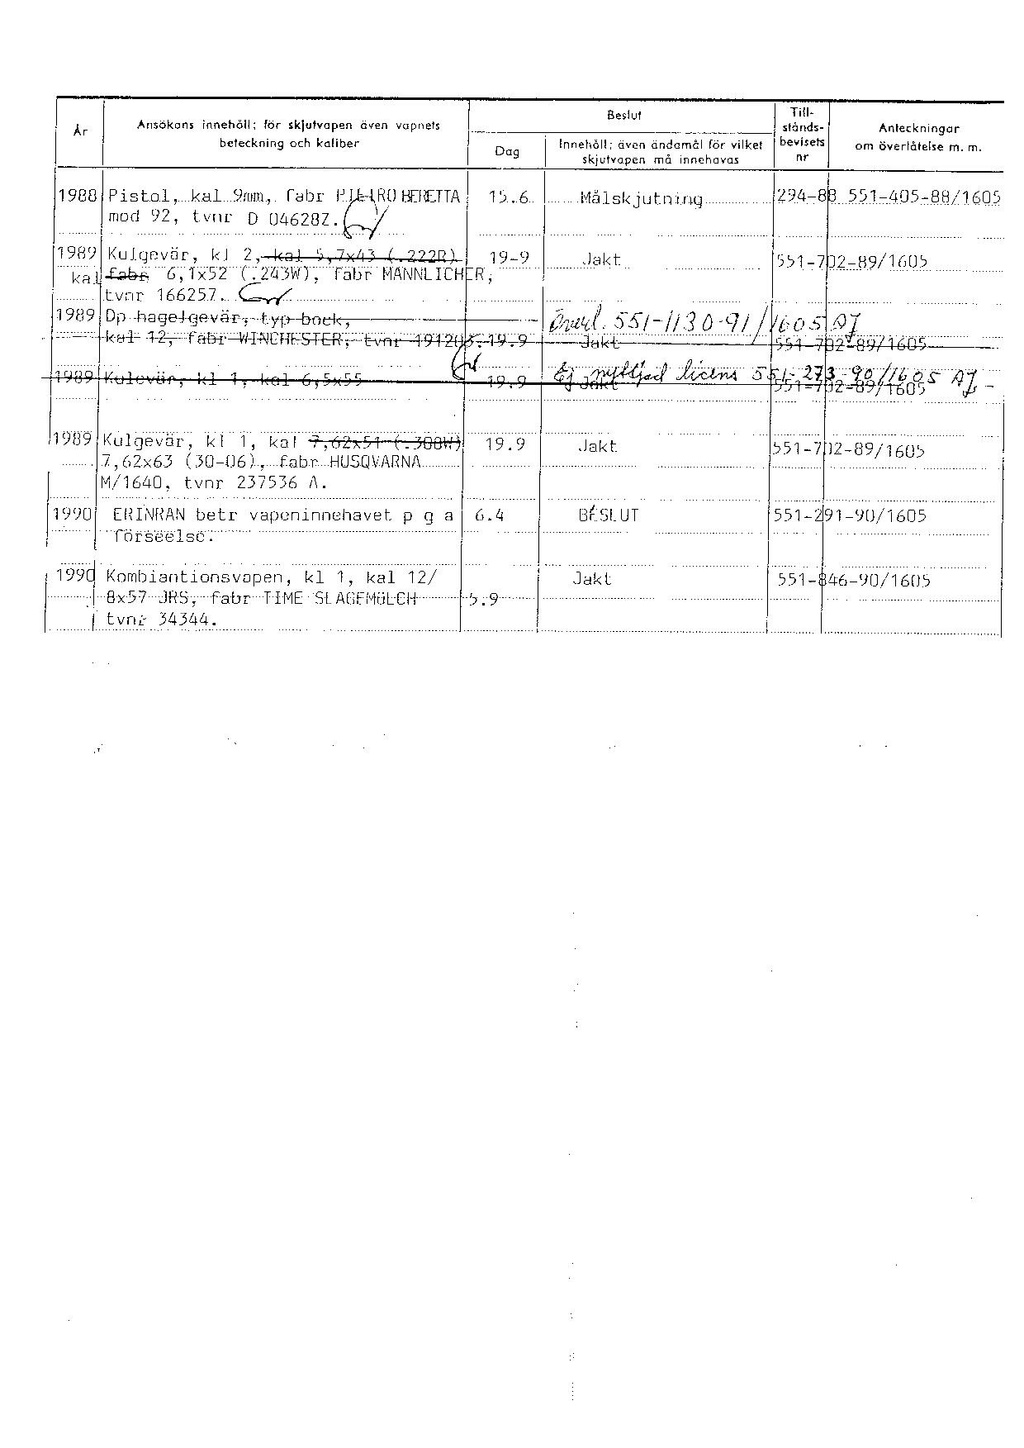 År
Ansökans innehåll; för skjutvapen även vapnets
beteckning och kaliber
Beslut
Dag
Innehåll; även ändamål för vilket
skjutvapen må innehavas
Till-
stånds-
bevisets
nr
Anteckningar
om överlåtelse m. m.
1988 Pistol, kal 9mm, fabr PIETRO BERETTA 15.6 Målskjutning 294-88 551-405-88/1605
mod 92, tvnr D 04628Z.
1989 Kulgevär, kl 2, kal 5,7x43 (.222R) 19-9 Jakt 551-702-89/1605
kal fabr 6,1x52 (.243W), fabr MANNLICHER,
tvnr 166257.
1989 Dp hagelgevär, typ bock, Överl. 551-1130-91/1605 AJ
kal 12, fabr WINCHESTER, tvnr 191205. 19.9 Jakt 551-702-89/1605
1989 Kulevär, kl 1, kal 6,5x55 19.9 Ej nyttjad licens 551-273-90/1605 AJ
Jakt 551-702-89/1605
1989 Kulgevär, kl 1, kal 7,62x51 (.308W) 19.9 Jakt 551-702-89/1605
7,62x63 (30-06), fabr HUSQVARNA
M/1640, tvnr 237536 A.
1990 ERINRAN betr vapeninnehavet p g a 6.4 BESLUT 551-291-90/1605
förseelse.
1990 Kombiantionsvapen, kl 1, kal 12/ Jakt 551-846-90/1605
8x57 JRS, fabr TIME SLAGEMÜLCH 5.9
tvnr 34344.